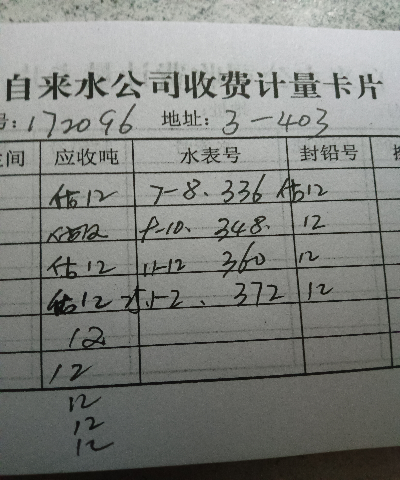 自来水公司收费计量卡片
号: 172096 地址: 3-403
间 应收吨 水表号 封铅号
估12 7-8. 336 估12
估12 9-10. 348. 12
估12 11-12 360 12
估12 1-2. 372 12
12
12
12
12
12